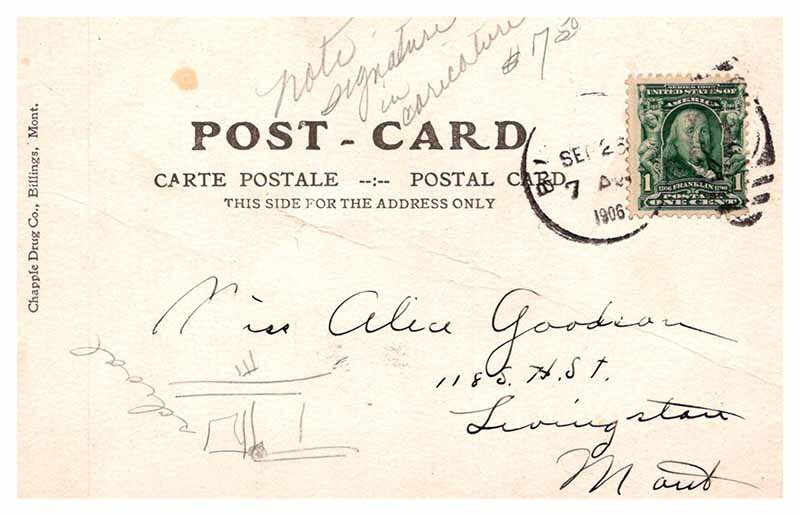 note
signature
in
caricature
$17 50
POST - CARD
CARTE POSTALE --:-- POSTAL CARD
THIS SIDE FOR THE ADDRESS ONLY
SEP 25
7 A
1906
SERIES 1902
UNITED STATES OF
AMERICA
1 FRANKLIN 1
POSTAGE
ONE CENT
Chapple Drug Co., Billings, Mont.
Miss Alice Goodson
118 S. H. St.
Livingston
Mont